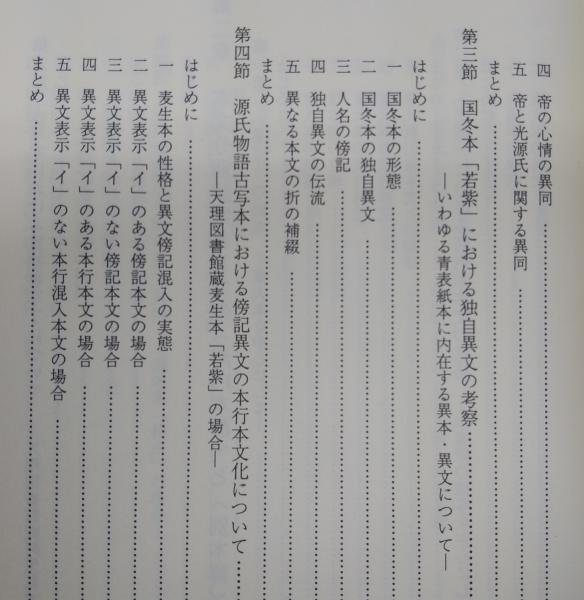 四　帝の心情の異同
五　帝と光源氏に関する異同
まとめ
第三節　国冬本「若紫」における独自異文の考察
―いわゆる青表紙本に内在する異本・異文について―
はじめに
一　国冬本の形態
二　国冬本の独自異文
三　人名の傍記
四　独自異文の伝流
五　異なる本文の折の補綴
まとめ
第四節　源氏物語古写本における傍記異文の本行本文化について
―天理図書館蔵麦生本「若紫」の場合―
はじめに
一　麦生本の性格と異文傍記混入の実態
二　異文表示「イ」のある傍記本文の場合
三　異文表示「イ」のない傍記本文の場合
四　異文表示「イ」のある本行本文の場合
五　異文表示「イ」のない本行混入本文の場合
まとめ